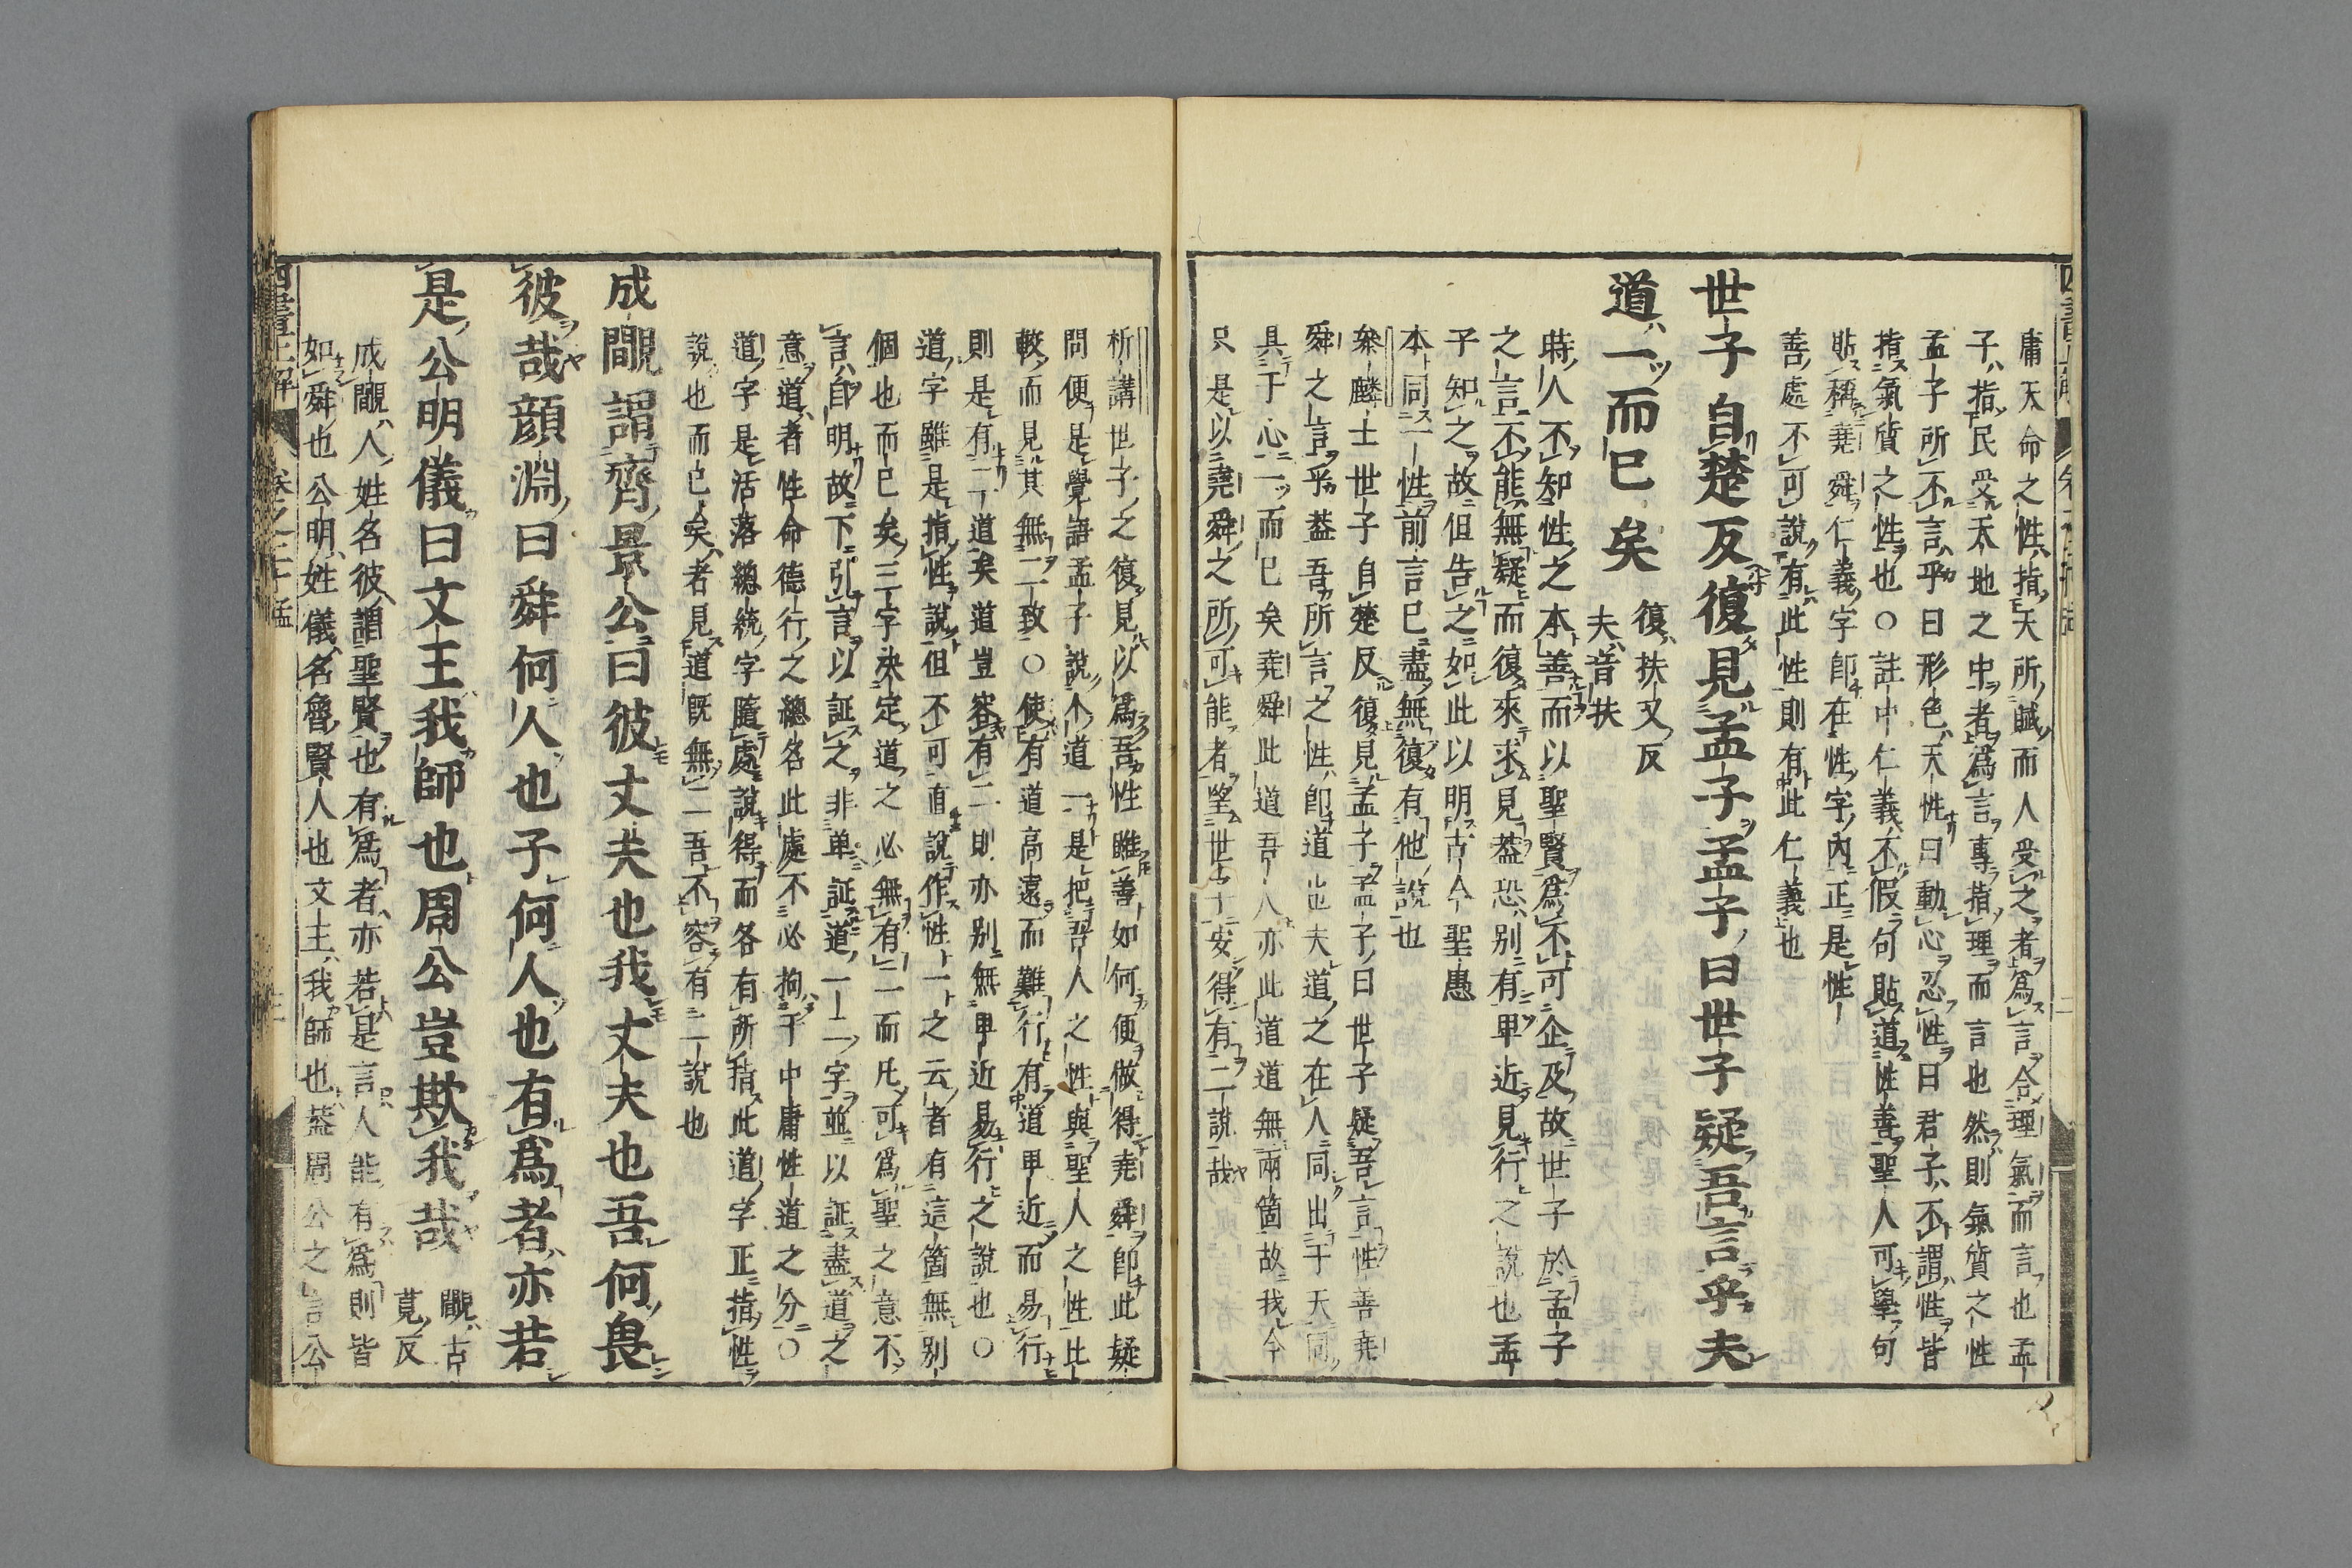 庸天命之性指天所賦而人受之者爲言合理氣而言也孟
子指民受天地之中者爲言專指理而言也然則氣質之性
孟子所不言乎曰形色天性曰動心忍性曰君子不謂性皆
指氣質之性也○註中仁義不假句貼道性善聖人可學句
貼稱堯舜仁義字卽在性字內正是性
善處不可說有此性則有此仁義也
世子自楚反復見孟子孟子曰世子疑吾言乎夫
道一而已矣
復扶又反
夫音扶
時人不知性之本善而以聖賢爲不可企及故世子於孟子
之言不能無疑而復來求見蓋恐別有卑近易行之說也孟
子知之故但告之如此以明古今聖愚
本同一性前言已盡無復有他說也
叅麟士世子自楚反復見孟子孟子曰世子疑吾言性善堯
舜之言乎蓋吾所言之性卽道也夫道之在人同出于天同
具于心一而已矣堯舜此道吾人亦此道道無兩箇故我今
只是以堯舜之所可能者望世子安得有二說哉
析講世子之復見以爲吾性雖善如何便做得堯舜卽此疑
問便是覺語孟子說个道一是把吾人之性與聖人之性比
較而見其無二致○使有道高遠而難行有道卑近而易行
則是有二道矣道豈容有二則亦別無卑近易行之說也○
道字雖是指性說但不可直說作性一之云者有這箇無別
個也而已矣三字決定道之必無有二而凡可爲聖之意不
言自明故下引言以証之非单証道一二字並以証盡道之
意道者性命德行之總名此處不必拘于中庸性道之分○
道字是活落總統字隨處說得而各有所指此道字正指性
說也而已矣者見道既無二吾不容有二說也
成覵謂齊景公曰彼丈夫也我丈夫也吾何畏
彼哉顏淵曰舜何人也子何人也有爲者亦若
是公明儀曰文王我師也周公豈欺我哉
覵古
莧反
成覵人姓名彼謂聖賢也有爲者亦若是言人能有爲則皆
如舜也公明姓儀名魯賢人也文王我師也蓋周公之言公